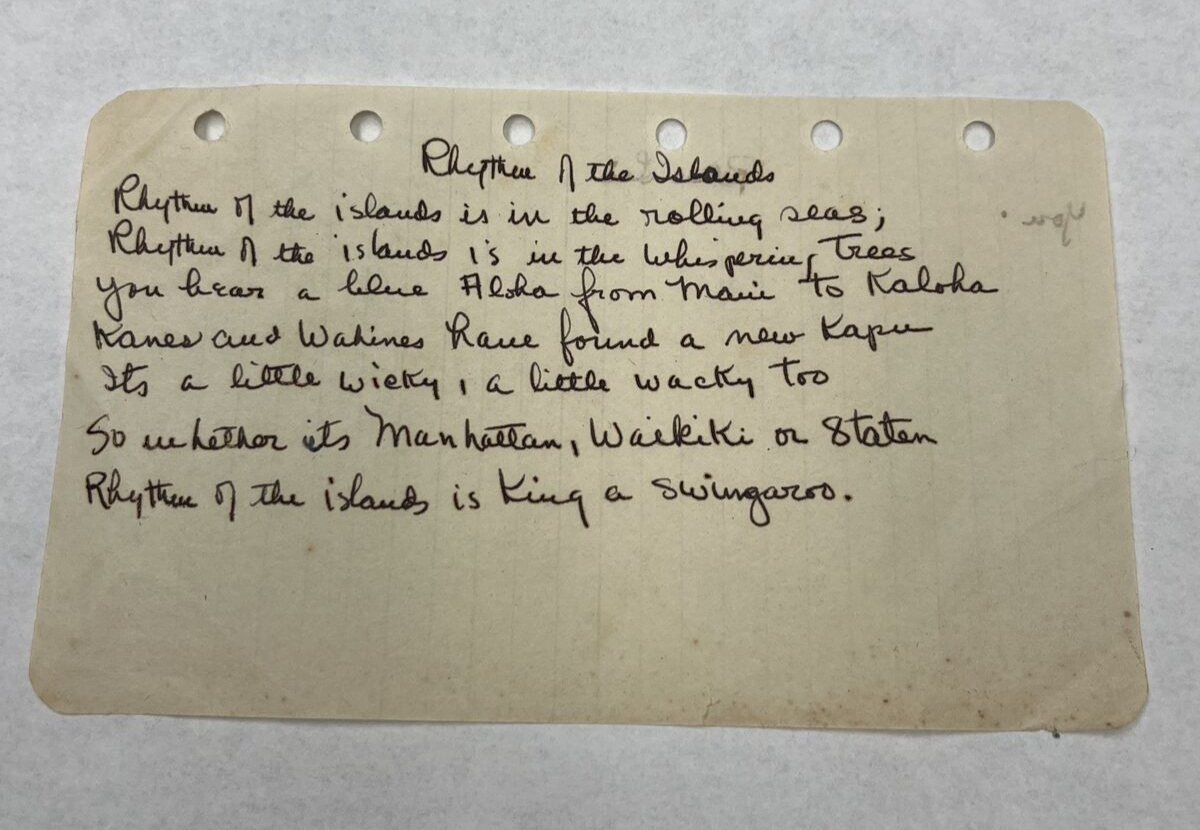 Rhythm of the Islands
Rhythm of the islands is in the rolling seas;
Rhythm of the islands is in the whispering Trees
You hear a blue Aloha from Maui to Kaloha
Kanes and Wahines have found a new Kapu
Its a little wicky, a little wacky too
So whether its Manhattan, Waikiki or Staten
Rhythm of the islands is King a swingaroo.
you.